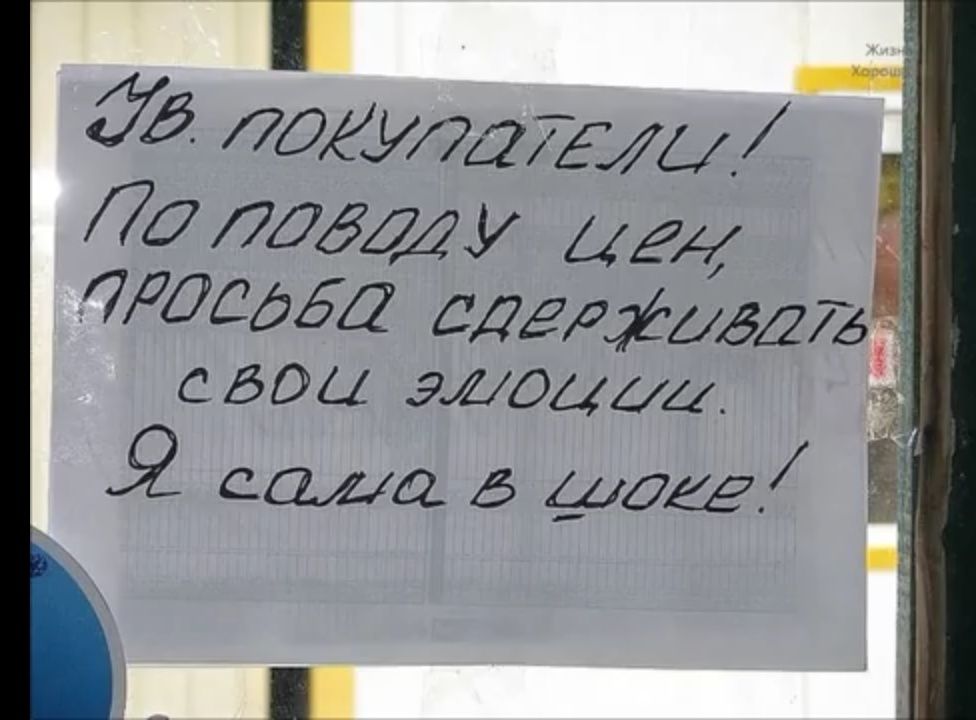 Жизнь
Хороша
Ув. покупатели!
По поводу цен,
просьба сдерживать
свои эмоции.
Я сама в шоке!